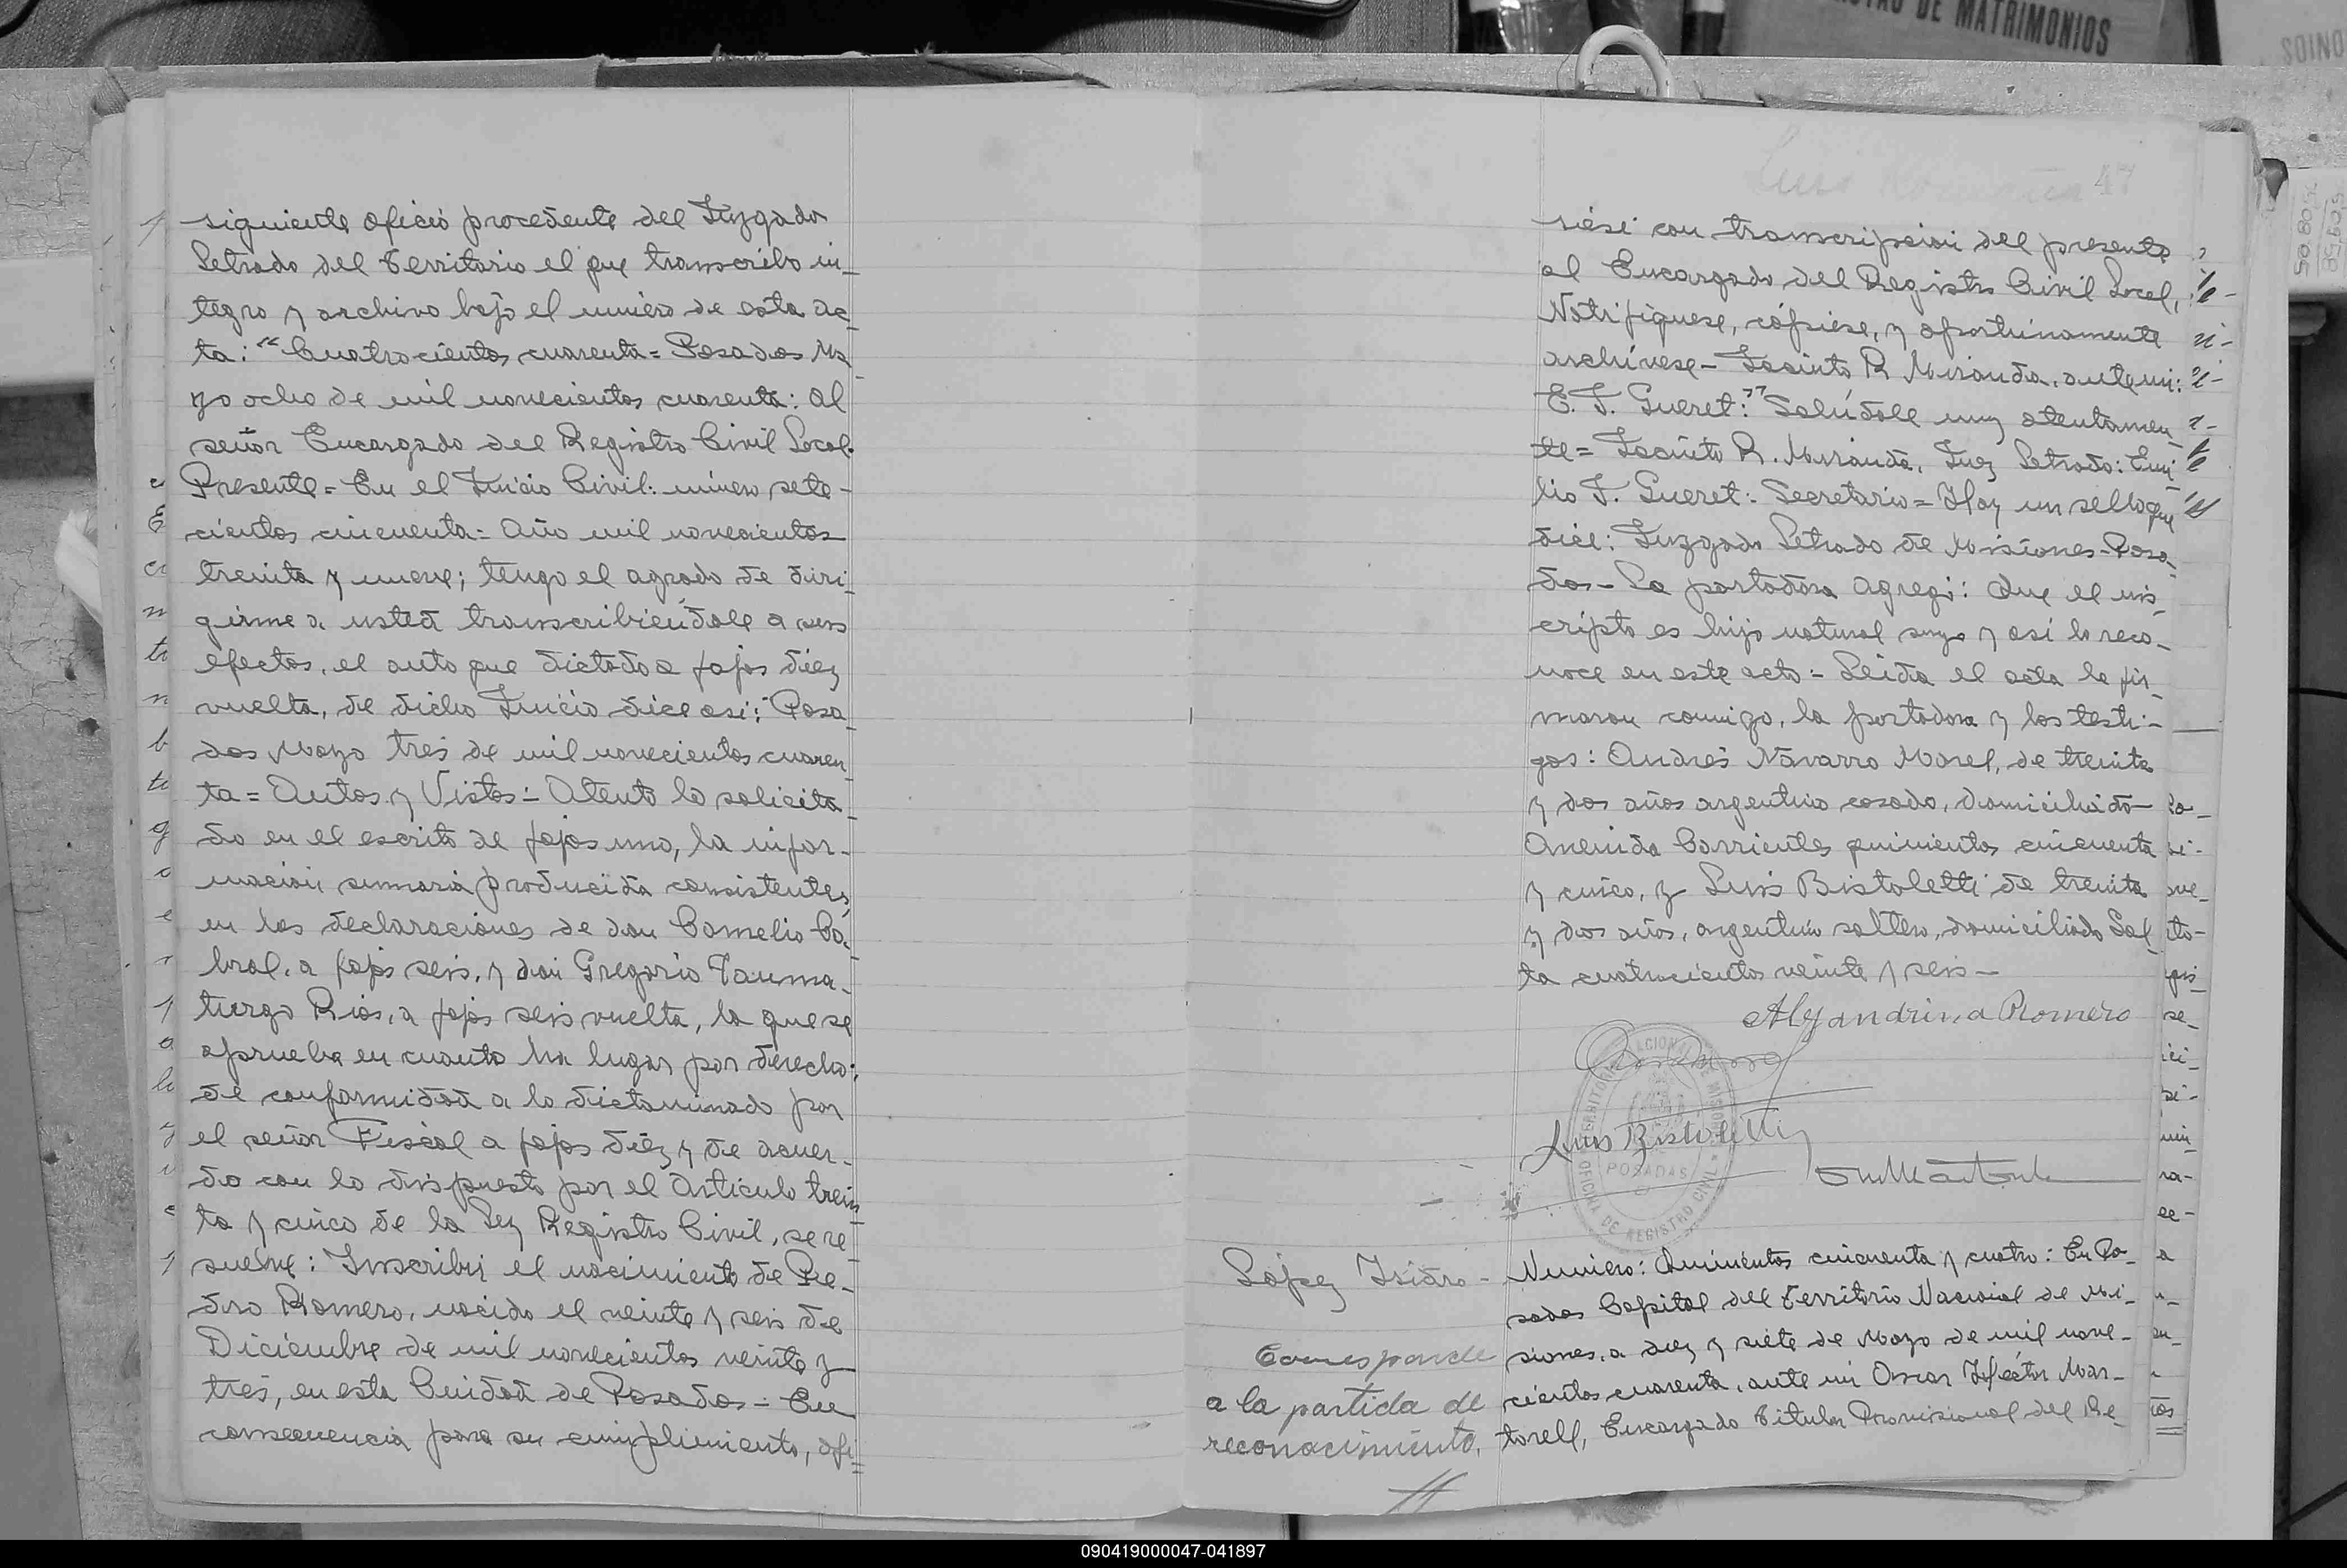 siguiente oficio procedente del Juzgado
Letrado del Territorio el que transcribo in-
tegro y archivo bajo el numero de esta ac-
ta: "Cuatrocientos cuarenta = Posadas Ma
yo ocho de mil novecientos cuarenta: Al
señor Encargado del Registro Civil Local.
Presente = En el Juicio Civil: número sete-
cientos cincuenta = Año mil novecientos
treinta y nueve; tengo el agrado de diri-
girme a usted transcribiéndole a sus
efectos, el auto que dictado a fojas diez
vuelta, de dicho Juicio dice asi: "Posa-
das Mayo tres de mil novecientos cuaren-
ta = Autos y Vistos: = Atento lo solicita-
do en el escrito de fojas uno, la infor-
mación sumaria producida consistentes
en las declaraciones de don Cornelio Ca-
bral, a fojas seis, y don Gregorio Tauma-
turgo Rios, a fojas seis vuelta, la que se
aprueba en cuanto ha lugar por derecho;
de conformidad a lo dictaminado por
el señor Fiscal a fojas diez y de acuer-
do con lo dispuesto por el Artículo trein-
ta y cinco de la Ley Registro Civil, se re-
suelve: Inscribir el nacimiento de Pe-
dro Romero, nacido el veinte y seis de
Diciembre de mil novecientos veinte y
tres, en esta Ciudad de Posadas = En
consecuencia para su cumplimiento, ofi=
47
siese con transcripcion del presente
al Encargado del Registro Civil Local,
Notifiquese, cópiese, y oportunamente
archívese - Jacinto R Miranda, ante mi:
E. J. Gueret:" Salúdole muy atentamen-
te = Jacinto R. Miranda, Juez Letrado: Emi
lio J. Gueret: Secretario = Hay un sello que
dice: Juzgado Letrado de Misiones - Posa-
das - La portadora agregó: Que el ins-
cripto es hijo natural suyo y asi lo reco-
noce en este acto = Leida el acta la fir-
maron conmigo, la portadora y los testi-
gos: Andrés Navarro Morel, de treinta
y dos años argentino casado, domiciliado
Avenida Corrientes quinientos cincuenta
y cinco, y Luis Bistoletti de treinta
y dos años, argentino soltero, domiciliado Sal-
ta cuatrocientos veinte y seis -
Alejandrina Romero
Luis Bistoletti
OFICINA DE REGISTRO CIVIL
POSADAS
López Isidro -
Corresponde
a la partida de
reconocimiento.
Numero: Quinientos cincuenta y cuatro: En Po-
sadas Capital del Territorio Nacional de Mi-
siones, a diez y siete de Mayo de mil nove-
cientos cuarenta, ante mi Oscar Héctor Mar-
torell, Encargado Titular Provisional del Re-
DE MATRIMONIOS
090419000047-041897